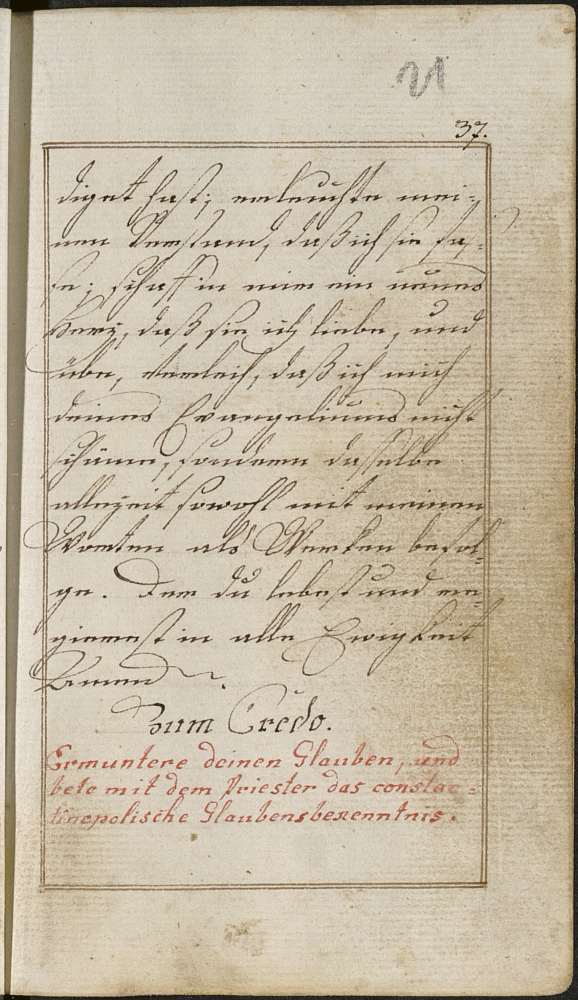 37.
diget hast; erleuchte mei-
nen Verstand, daß ich sie fas-
se; schaff in mir ein neues
Herz, daß sie ich liebe, und
übe, verleih, daß ich mich
deines Evangeliums nicht
schäme, sondern dasselbe
allezeit sowohl mit meinen
Worten als Werken befol-
ge. Der du lebest und re-
gierest in alle Ewigkeit
Amen.
Zum Credo.
Ermuntere deinen Glauben, und
bete mit dem Priester das constan-
tinopolische Glaubensbekenntnis.